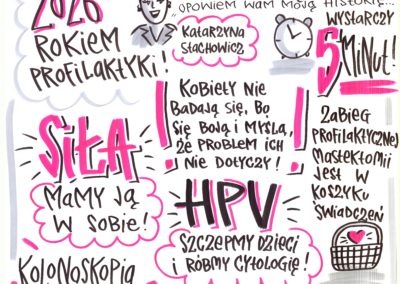 2026
ROKIEM
PROFILAKTYKI!
"OPOWIEM WAM MOJĄ HISTORIĘ...
KATARZYNA
STACHOWICZ
WYSTARCZY
5 MINUT!
SIŁA
MAMY JĄ
W SOBIE!
KOBIETY NIE
BADAJĄ SIĘ, BO
SIĘ BOJĄ I MYŚLĄ,
ŻE PROBLEM ICH
NIE DOTYCZY!
HPV
SZCZEPMY DZIECI
I RÓBMY CYTOLOGIĘ!
ZABIEG
PROFILAKTYCZNEJ
MASTEKTOMII
JEST W
KOSZYKU
ŚWIADCZEŃ
KOLONOSKOPIA